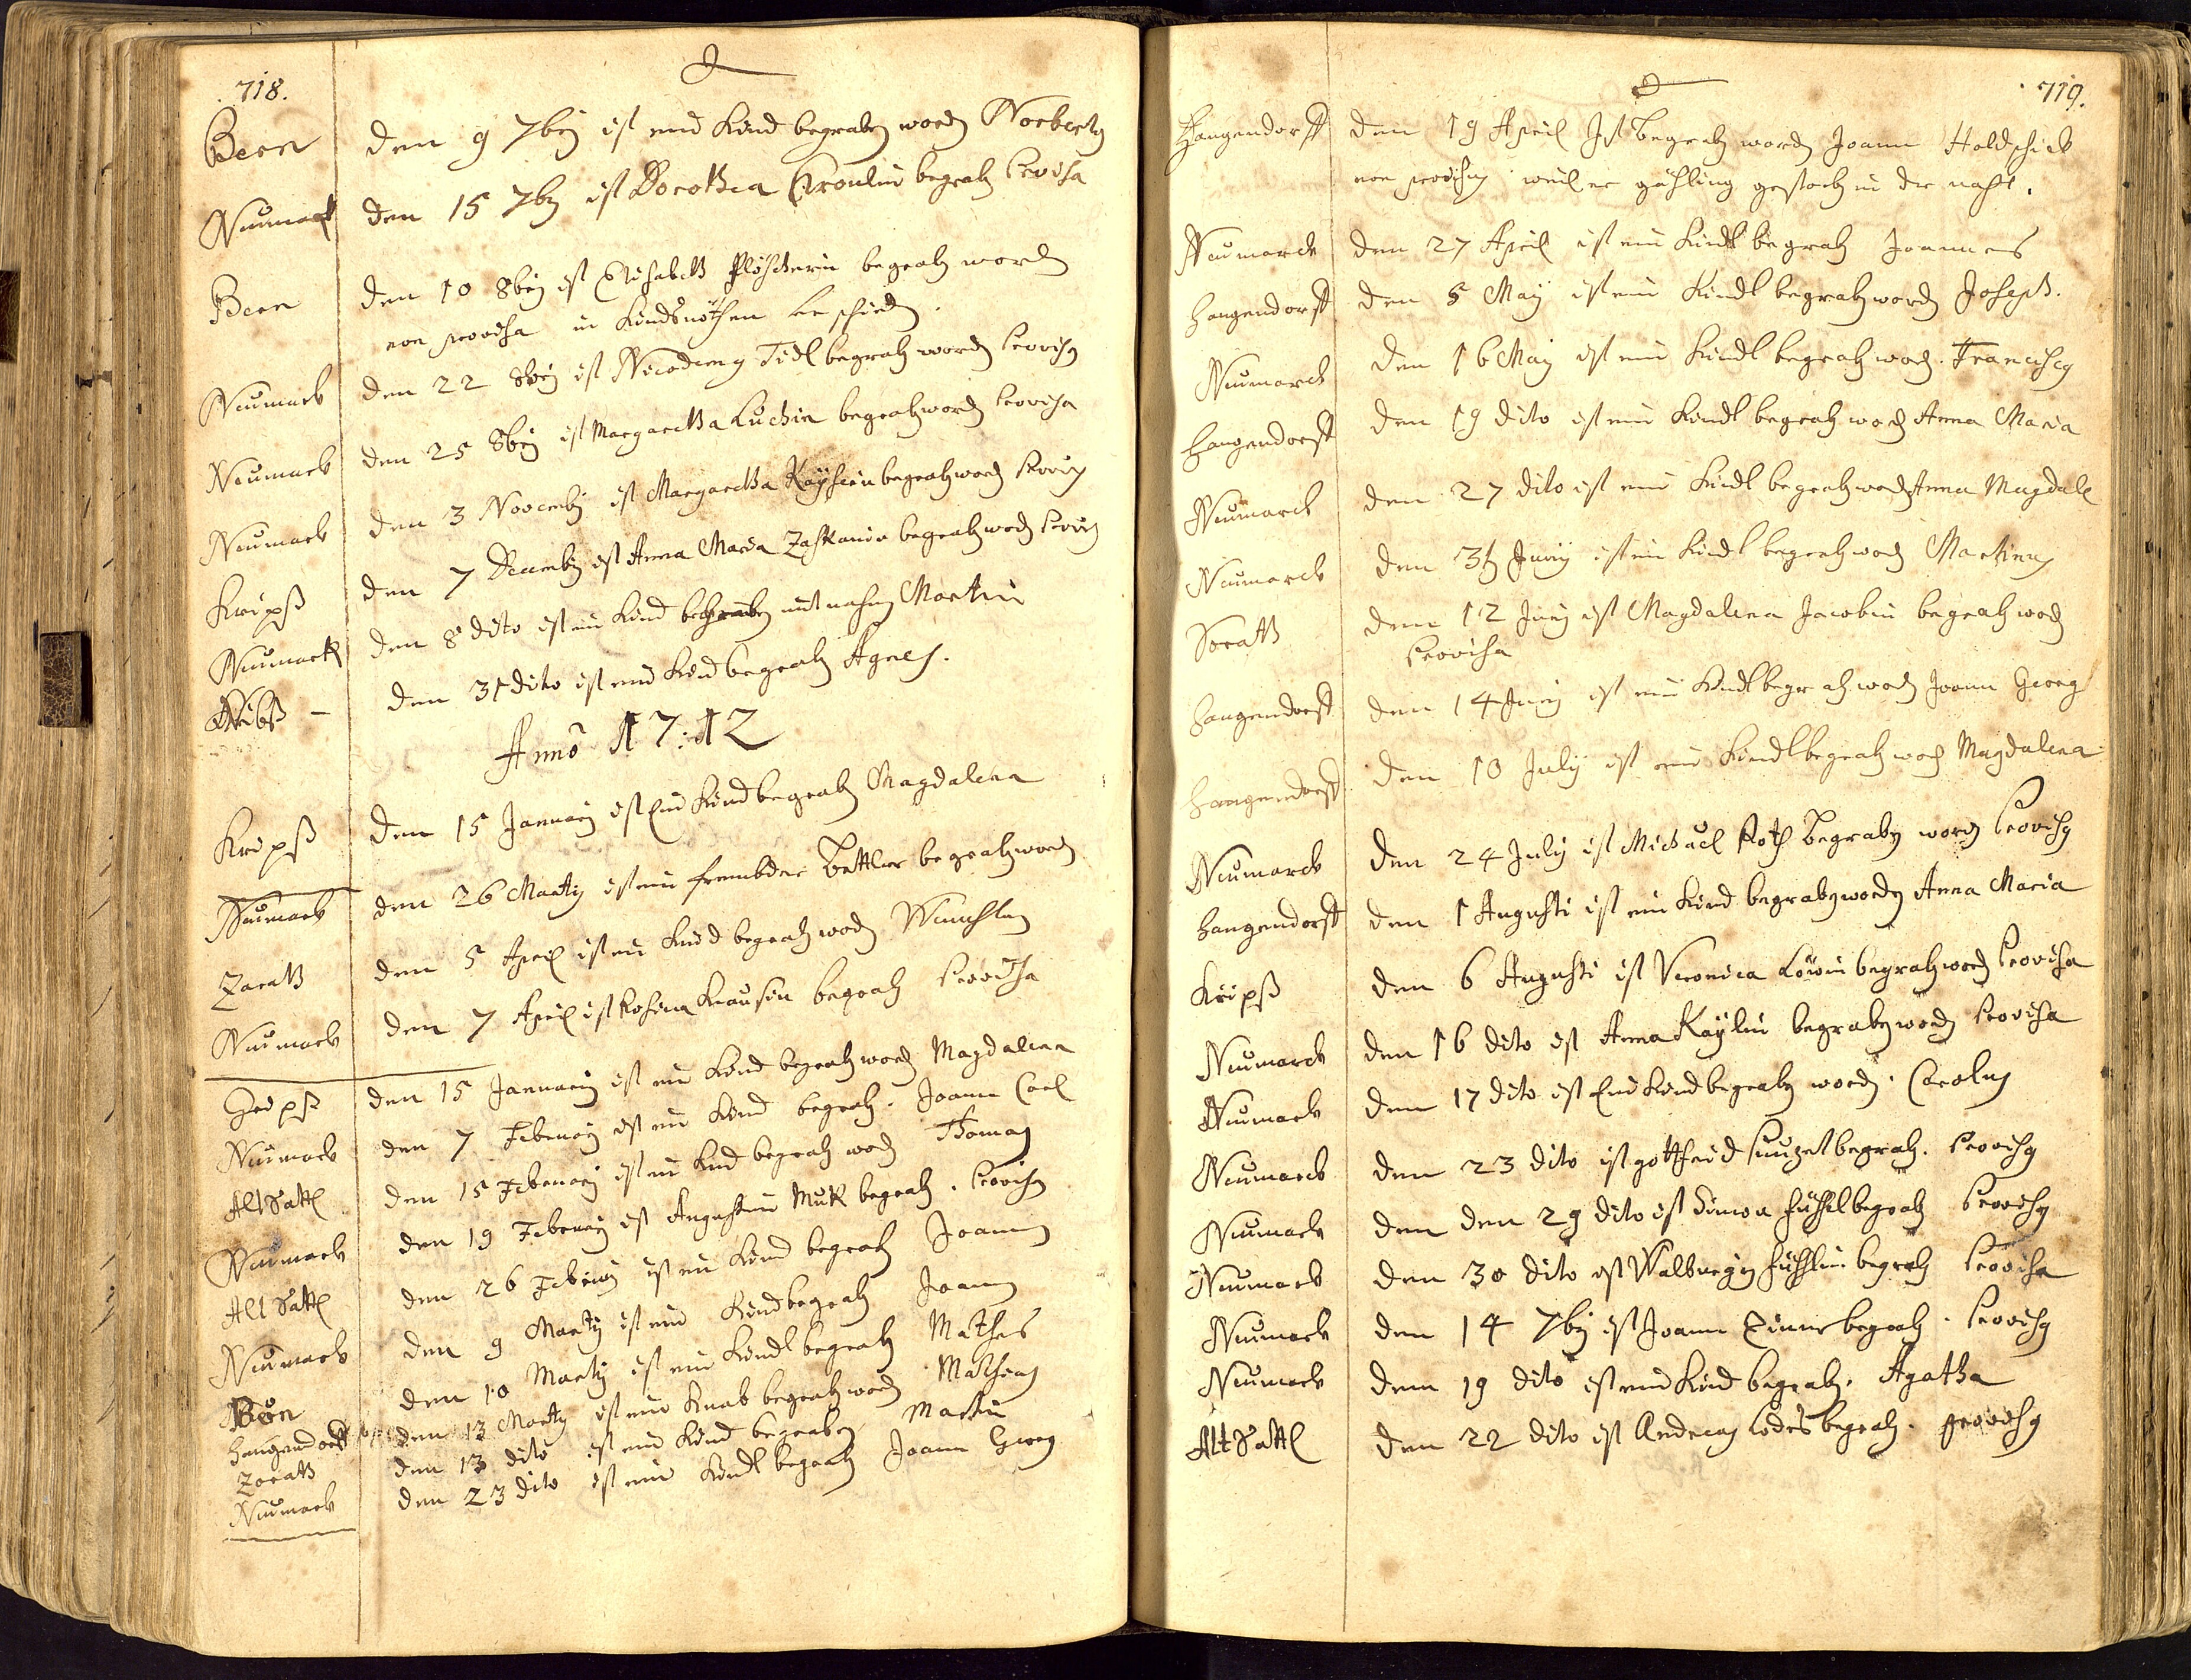 718.
Bern den 9 7bj ist eind Kind begraben worden Norbertg
Neumark den 15 7bj ist Dorothea begrab provisa
Bern den 10 8bj ist Elisabeth begrab worden
non provisa in Kindsnöthen
Neumark den 22 8bj ist Nicodemg Tidl begrab worden provisg
Neumark den 25 8bj ist Margaretha Luchin begrab worden provisa
Neumark den 3 Novembj ist Margaretha Kaÿserin begrab worden
Kripß den 7 Decembj ist Anna Maria begrab word
Neumark den 8 dito ist ein Kind begraben mit nahmen Martin
Kribß den 31 dito ist ein Kind begrab Agnes.
Anno 1712
Kripß den 15 Januarij ist Ein Kind begrab Magdalena
Neumark den 26 Martij ist ein frembder Bettler begrab worden
Zarath den 5 April ist ein Kind begrab word
Neumark den 7 April ist Rosina Krausin begrab provisa
Gripß den 15 Januarij ist ein Kind begrab word Magdalena
Neumark den 7 Februarij ist ein Kind begrab. Joann Carl
Alt Sattl den 15 Februarij ist ein Kind begrab word Thomas
Neumark den 19 Februarij ist Augustin begrab. provisg
Alt Sattl den 26 Februarij ist ein Kind begrab Joann
Neumark den 9 Martij ist ein Kind begrab Joann
Bern den 10 Martij ist ein Kindl begrab Mathes
Hangendorff den 13 Martij ist ein Knab begrab word Mathias
Zorath den 13 dito ist ein Kind begraben Martin
Neumark den 23 dito ist ein Kindl begrab Joann Georg
719.
Hangendorff den 19 April Ist begrab worden Joann Holdschick
non provisg weil er gähling gestorb in der nacht.
Neumarck den 27 April ist ein Kindl begrab Joannes
Hangendorff den 5 Maÿ ist ein Kindl begrab word Joseph.
Neumarck den 16 Maÿ ist ein Kindl begrab word. Franciscg
Hangendorff den 19 dito ist ein Kindl begrab word Anna Maria
Neumarck den 27 dito ist ein Kindl begrab word Anna Magdal
Neumarck den Junij ist ein Kindl begrab word Martinus
Sorath den 12 Junij ist Magdalena Jacobin begrab word
provisa
Hangendorff den 14 Junij ist ein Kindl begrab word Joann Georg
Hangendorff den 10 Julij ist ein Kindl begrab word Magdalena
Neumarck den 24 Julij ist Michael Roth begraben word provisg
Hangendorff den 1 Augusti ist ein Kind begraben worden Anna Maria
Kripß den 6 Augusti ist Veronica Löwin begrab word provisa
Neumarck den 16 dito ist Anna Kaÿlin begraben word provisa
Neumark den 17 dito ist Ein Kind begraben word. Carolus
Neumarck den 23 dito ist gottfrid begrab. provisg
Neumark den den 29 dito ist Simon begrab provisg
Neumark den 30 dito ist Walburgis begrab provisa
Neumark den 14 7bj ist Joann Zimer begrab. provisg
Neumark den 19 dito ist ein Kind begrab. Agatha
Alt Sattl den 22 dito ist Andreas begrab. provisg